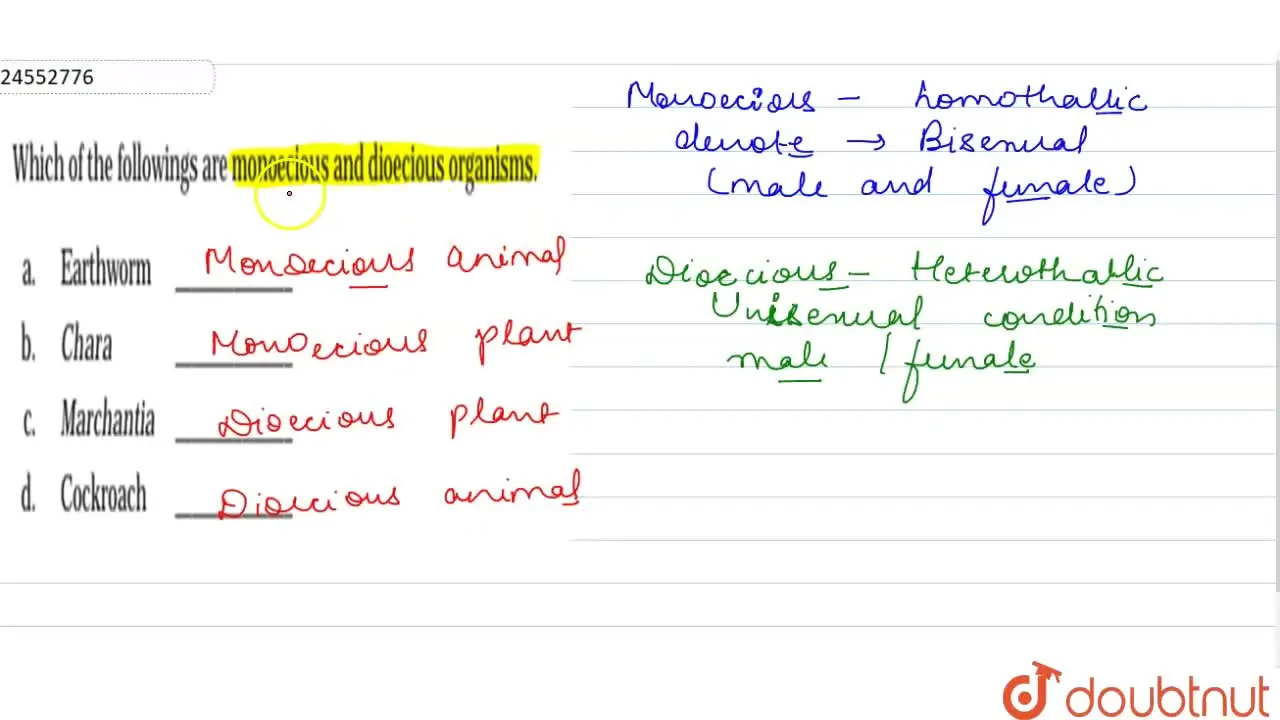 24552776
Which of the followings are monoecious and dioecious organisms.
a. Earthworm Monoecious animal
b. Chara Monoecious plant
c. Marchantia Dioecious plant
d. Cockroach Dioecious animal
Monoecious - homothallic
denote → Bisexual
(male and female)
Dioecious - Heterothallic
Unisexual condition
male / female
doubtnut